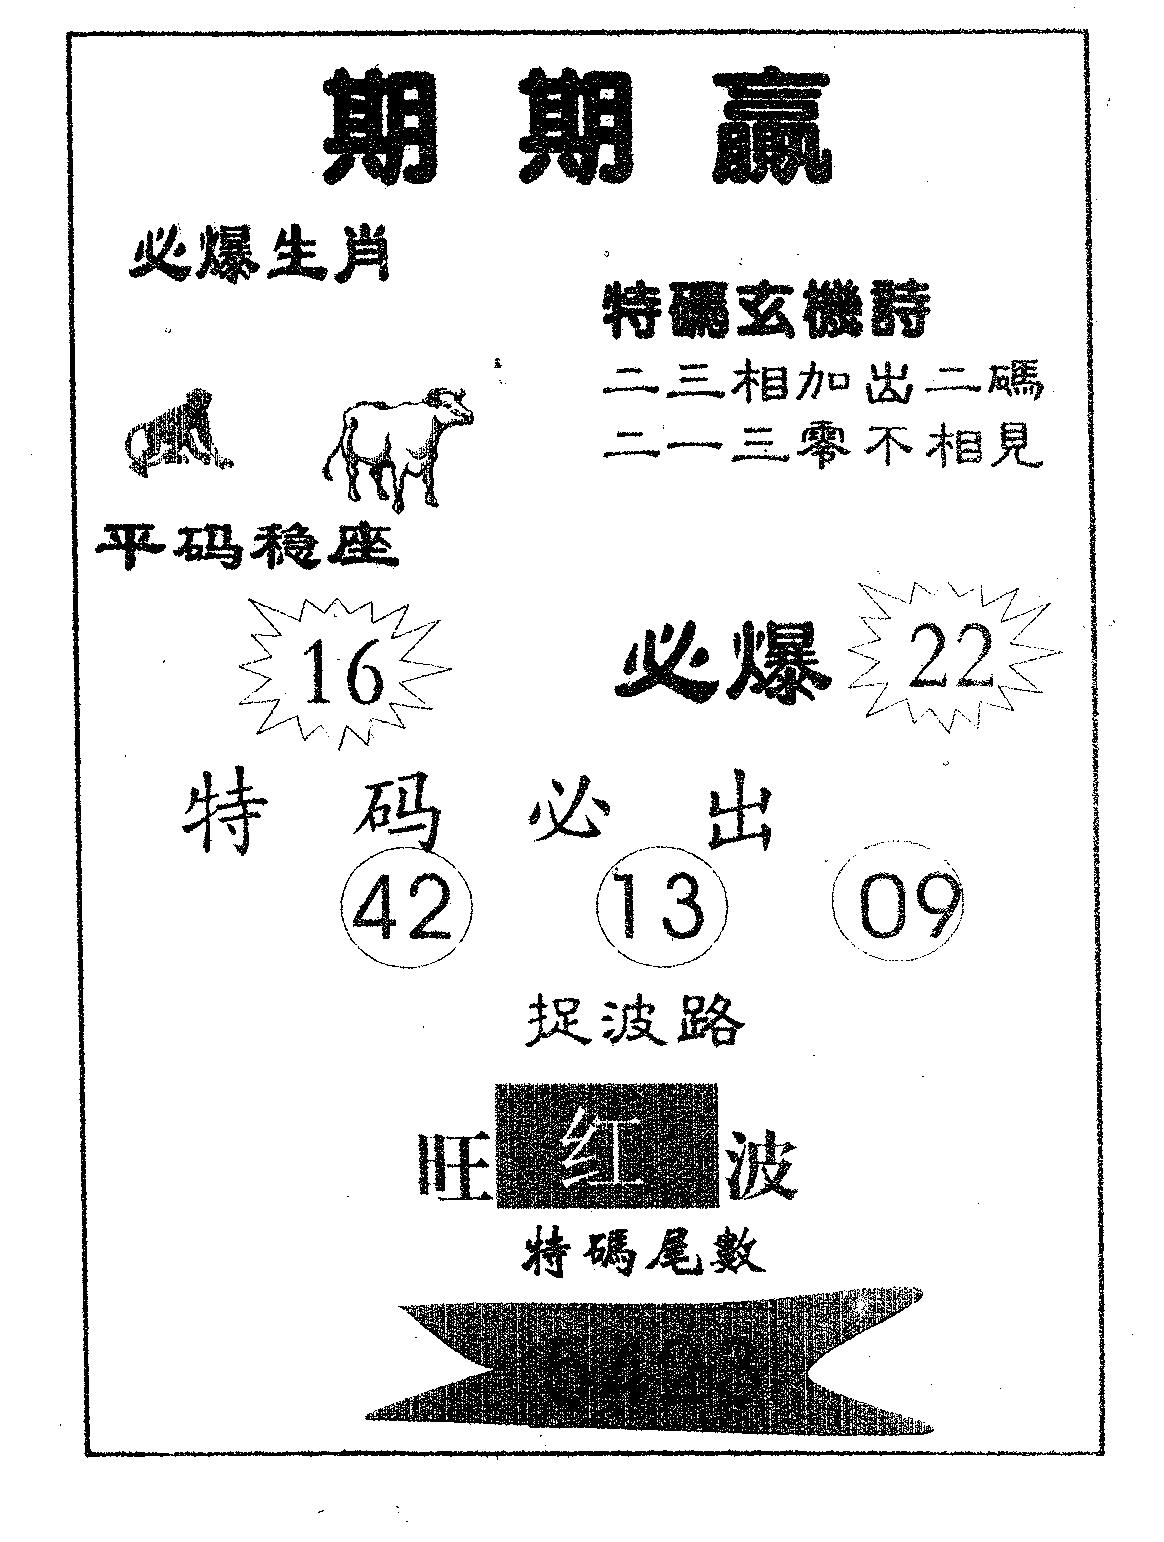 期期赢
必爆生肖
特碼玄機詩
二三相加出二碼
二一三零不相見
平码稳座
16
必爆 22
特码必出
42 13 09
捉波路
旺红波
特碼尾數